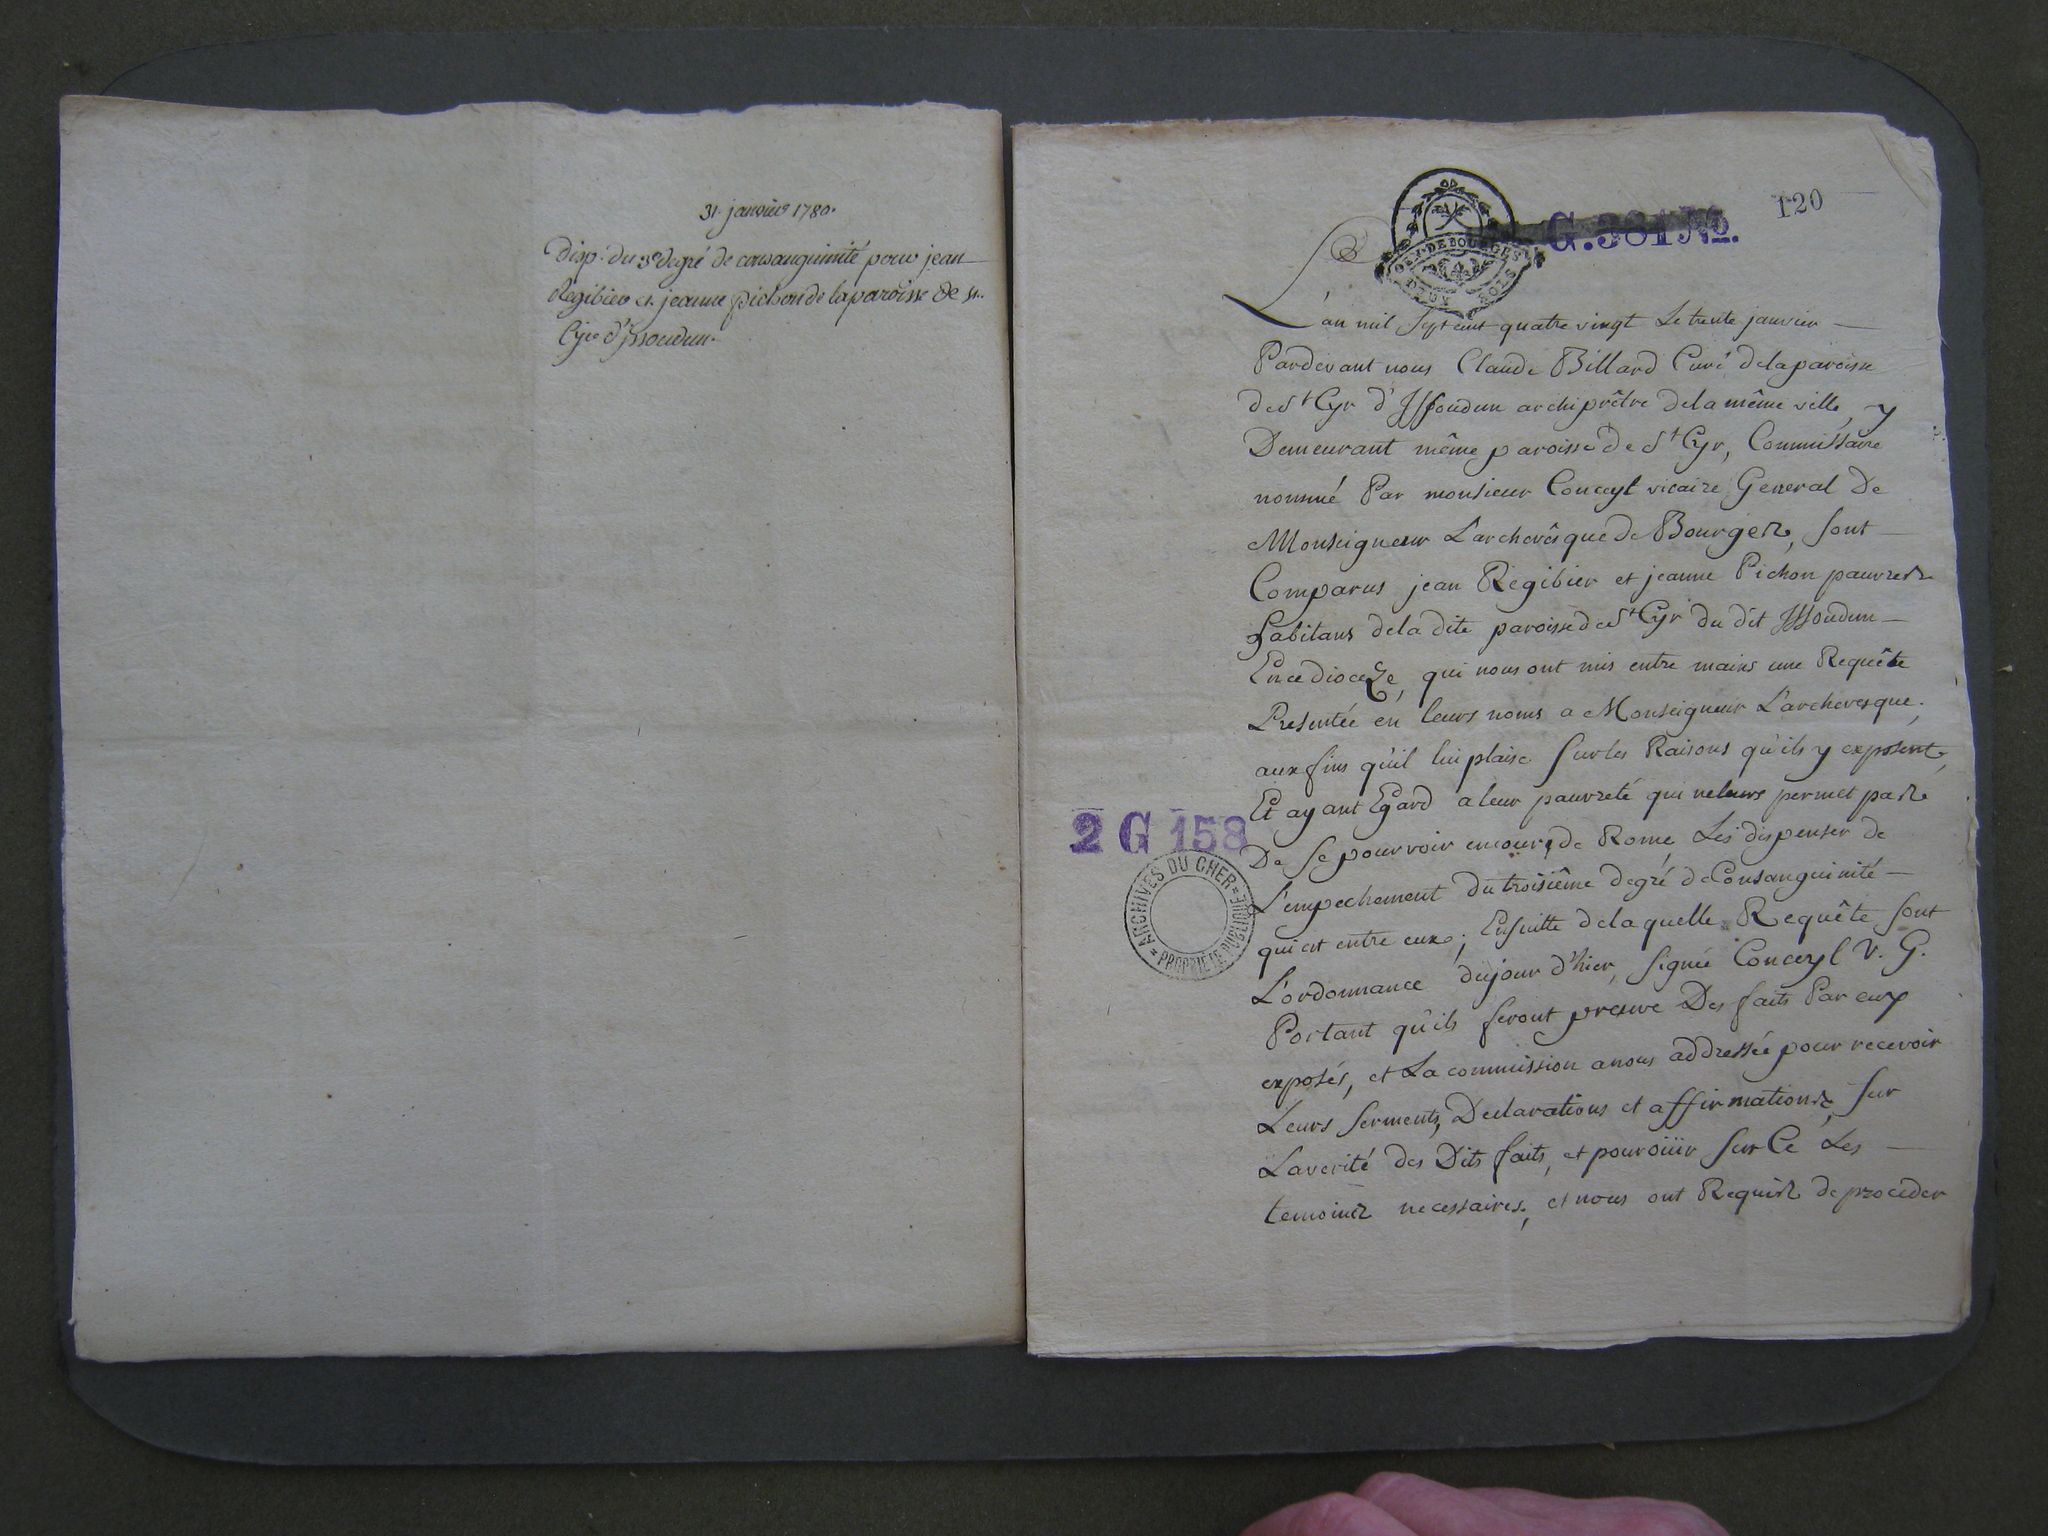 31. janvier 1780.
Disp. du 3e degré de consanguinité pour jean
Regibier et jeanne pichon de la paroisse de st.
Cyr d'issoudun.
120
G. 381
GEN. DE BOURGES
DEUX SOLS
L'an mil sept cent quatre vingt Le trente janvier
Pardevant nous Claude Billard Curé dela paroisse
de St Cyr d'Issoudun archiprêtre dela même ville, y
Demeurant même paroisse de St Cyr, Commissaire
nommé Par monsieur Conceyl vicaire General De
Monseigneur L'archevêque de Bourges, sont
Comparus jean Regibier et jeanne Pichon pauvres
habitans dela dite paroisse de St Cyr du dit Issoudun
En ce dioceze, qui nous ont mis entre mains une Requête
Presentée en leurs noms a Monseigneur L'archevesque.
aux fins qu'il lui plaise sur les Raisons qu'ils y exposent,
Et ayant Egard a leur pauvreté qui ne leurs permet pas
2 G 158
De se pourvoir en cour de Rome Les dispenser de
L'empechement du troisième degré de Consanguinité
qui est entre eux; Ensuitte dela quelle Requête sont
ARCHIVES DU CHER
PROPRIETE PUBLIQUE
L'ordonnance du jour d'hier, signée Conceyl V. G.
Portant qu'ils feront preuve Des faits Par eux
exposés, et La commission a nous addressée pour recevoir
Leurs serments, Declarations et affirmations, sur
La verité des Dits faits, et pour oüir sur Ce Les
temoins necessaires, et nous ont Requis de proceder